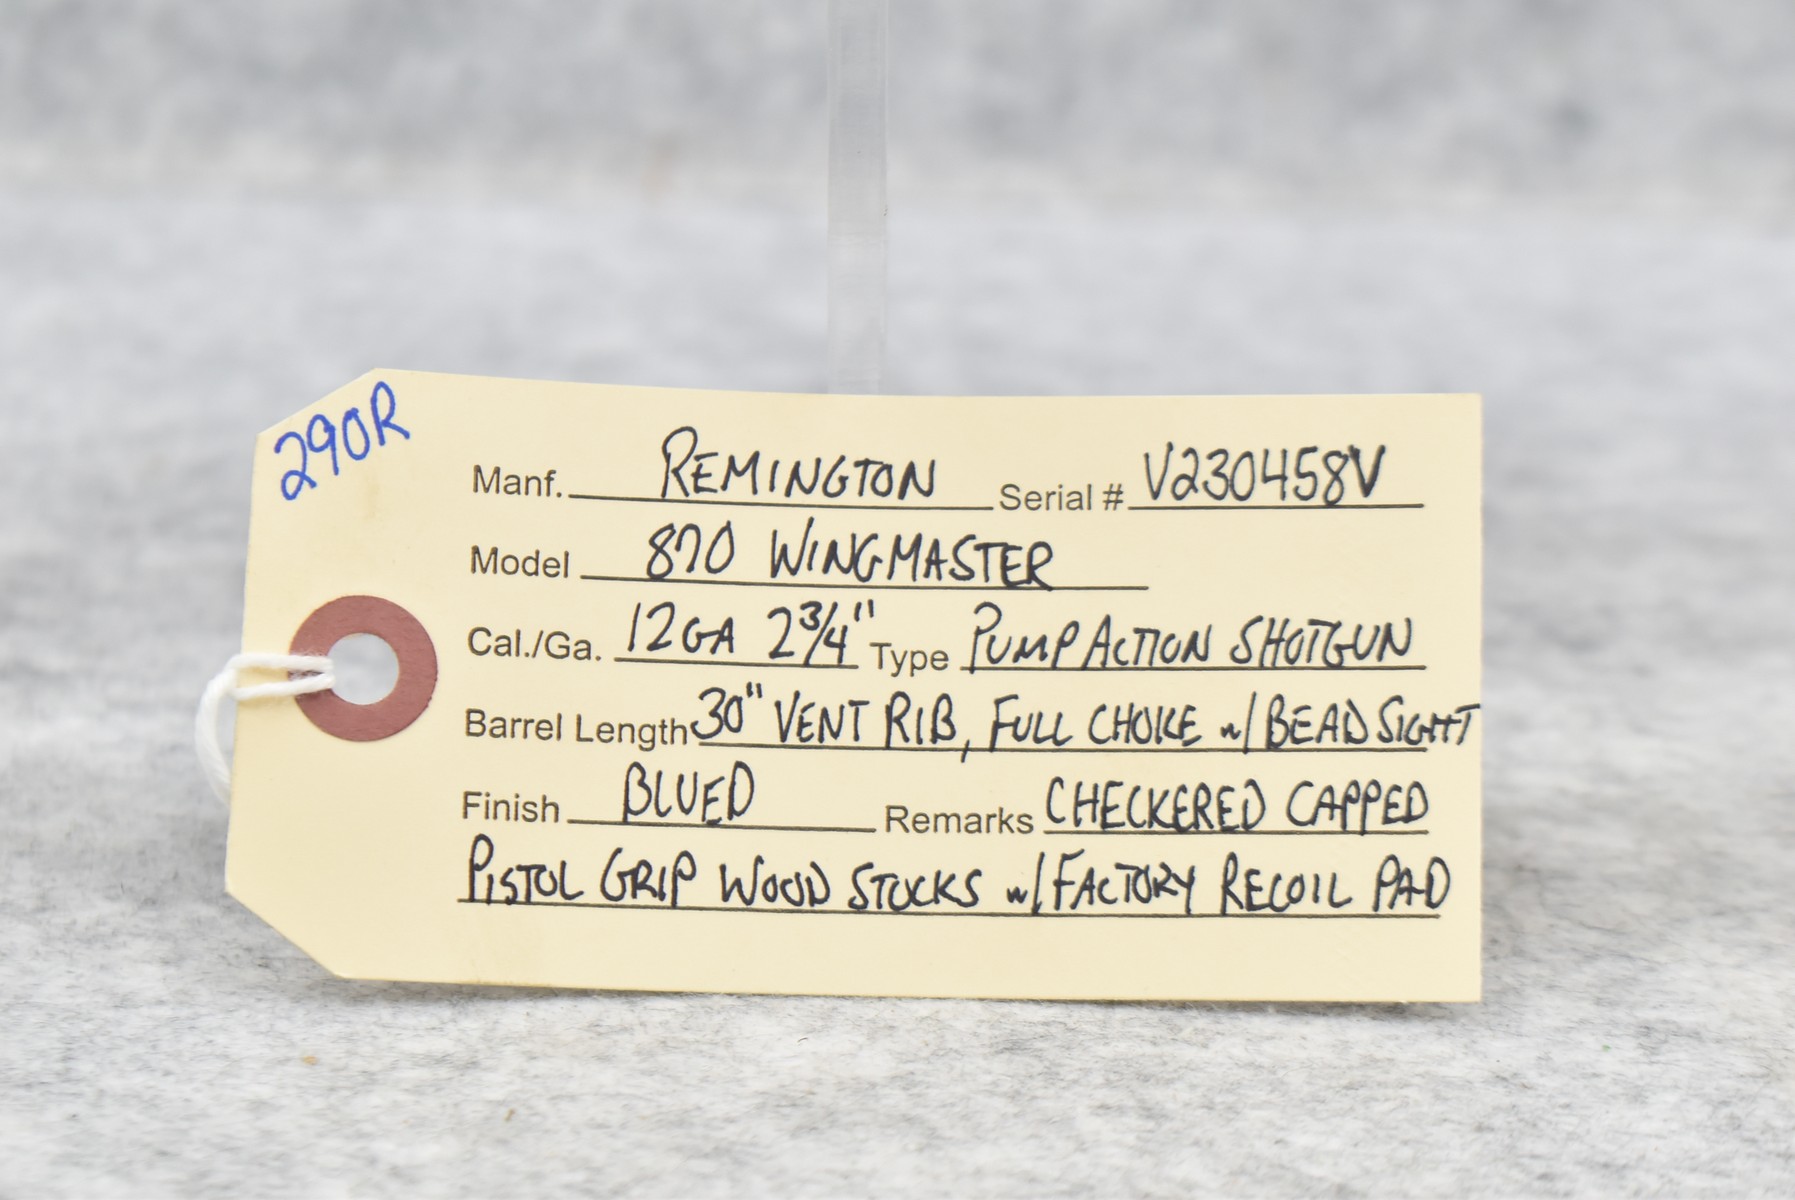 290R
Manf. REMINGTON Serial # V230458V
Model 870 WINGMASTER
Cal./Ga. 12GA 2 3/4" Type PUMP ACTION SHOTGUN
Barrel Length 30" VENT RIB, FULL CHOKE w/ BEAD SIGHT
Finish BLUED Remarks CHECKERED CAPPED
PISTOL GRIP WOOD STOCKS w/ FACTORY RECOIL PAD